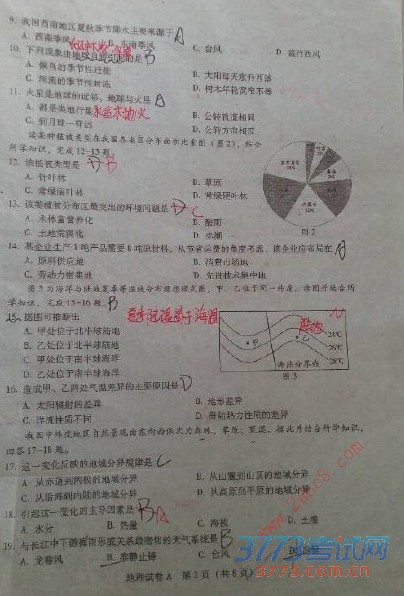 9. 我国西南地区夏秋季节降水主要来源于 A
A. 西南季风 B. 东南季风 C. 台风 D. 盛行西风
10. 下列现象由地球自转引起的是 B
A. 候鸟的季节性迁徙 B. 太阳每天东升西落
C. 河流的季节性封冻 D. 树木年轮宽窄不等
11. 火星是地球的近邻，地球与火星 A
A. 都是类地行星 水金地火 B. 公转轨道相同
C. 到月球一样远 D. 公转方向相反
读某种植被类型在我国各省区分布面积比重图（图2），结合
所学知识，完成12-13题。
12. 该植被类型是 D B
A. 针叶林 B. 草原
C. 常绿阔叶林 D. 常绿硬叶林
13. 该类植被分布区最突出的环境问题是 D C
A. 水体富营养化 B. 酸雨
C. 土地荒漠化 D. 赤潮
图2
14. 某企业生产1吨产品需要8吨原材料，从节省运费的角度考虑，该企业应布局在 A
A. 原料供应地 B. 消费市场地
C. 劳动力密集地 D. 先进技术集中地
图3为海洋与陆地夏季等温线分布理想模式图，甲、乙位于同一纬度。读图并结合所
学知识，完成15-16题。 B
15. 据图可推断出
A. 甲处位于北半球陆地
B. 乙处位于北半球陆地
C. 甲处位于南半球海洋
D. 乙处位于南半球海洋
甲 乙
24℃
26℃
28℃
海陆分界线
图3
16. 造成甲、乙两处气温差异的主要原因是 D
A. 太阳辐射的差异 B. 地形差异
C. 洋流性质不同 D. 海陆热力性质的差异
我国中纬度地区自然景观由东向西依次为森林、草原、荒漠。据此并结合所学知识，
回答17-18题。
17. 这一变化反映的地域分异规律是 C
A. 从赤道到两极的地域分异 B. 从山麓到山顶的地域分异
C. 从沿海到内陆的地域分异 D. 从高原到平原的地域分异
18. 引起这一变化的主导因素是 B A
A. 水分 B. 热量 C. 海拔 D. 土壤
19. 与长江中下游梅雨形成关系最密切的天气系统是 B
A. 龙卷风 B. 准静止锋 C. 台风
地理试卷A 第2页（共6页）
3773考试网